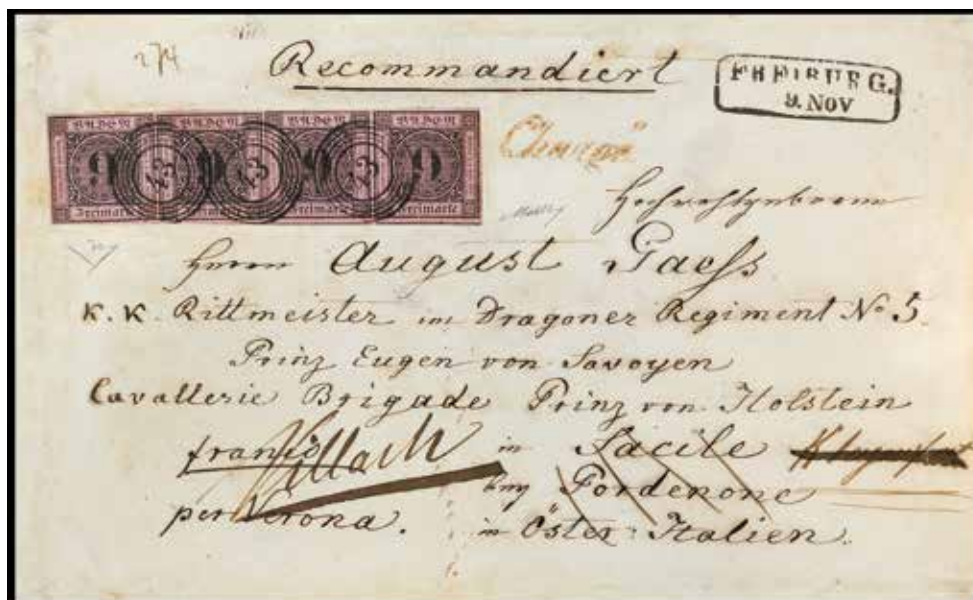 274
Recommandiert
FREIBURG.
9. NOV
BADEN BADEN BADEN BADEN
9 9 9 9
43 43 43
Freimarke Freimarke Freimarke Freimarke
Chargé
Hochwohlgeboren
Herrn August Gaess
K. K. Rittmeister im Dragoner Regiment No 5.
Prinz Eugen von Savoyen
Cavallerie Brigade Prinz von Holstein
franco Villach in Sacile Klagenfurt
bey Pordenone
per Verona. in Öster: Italien.